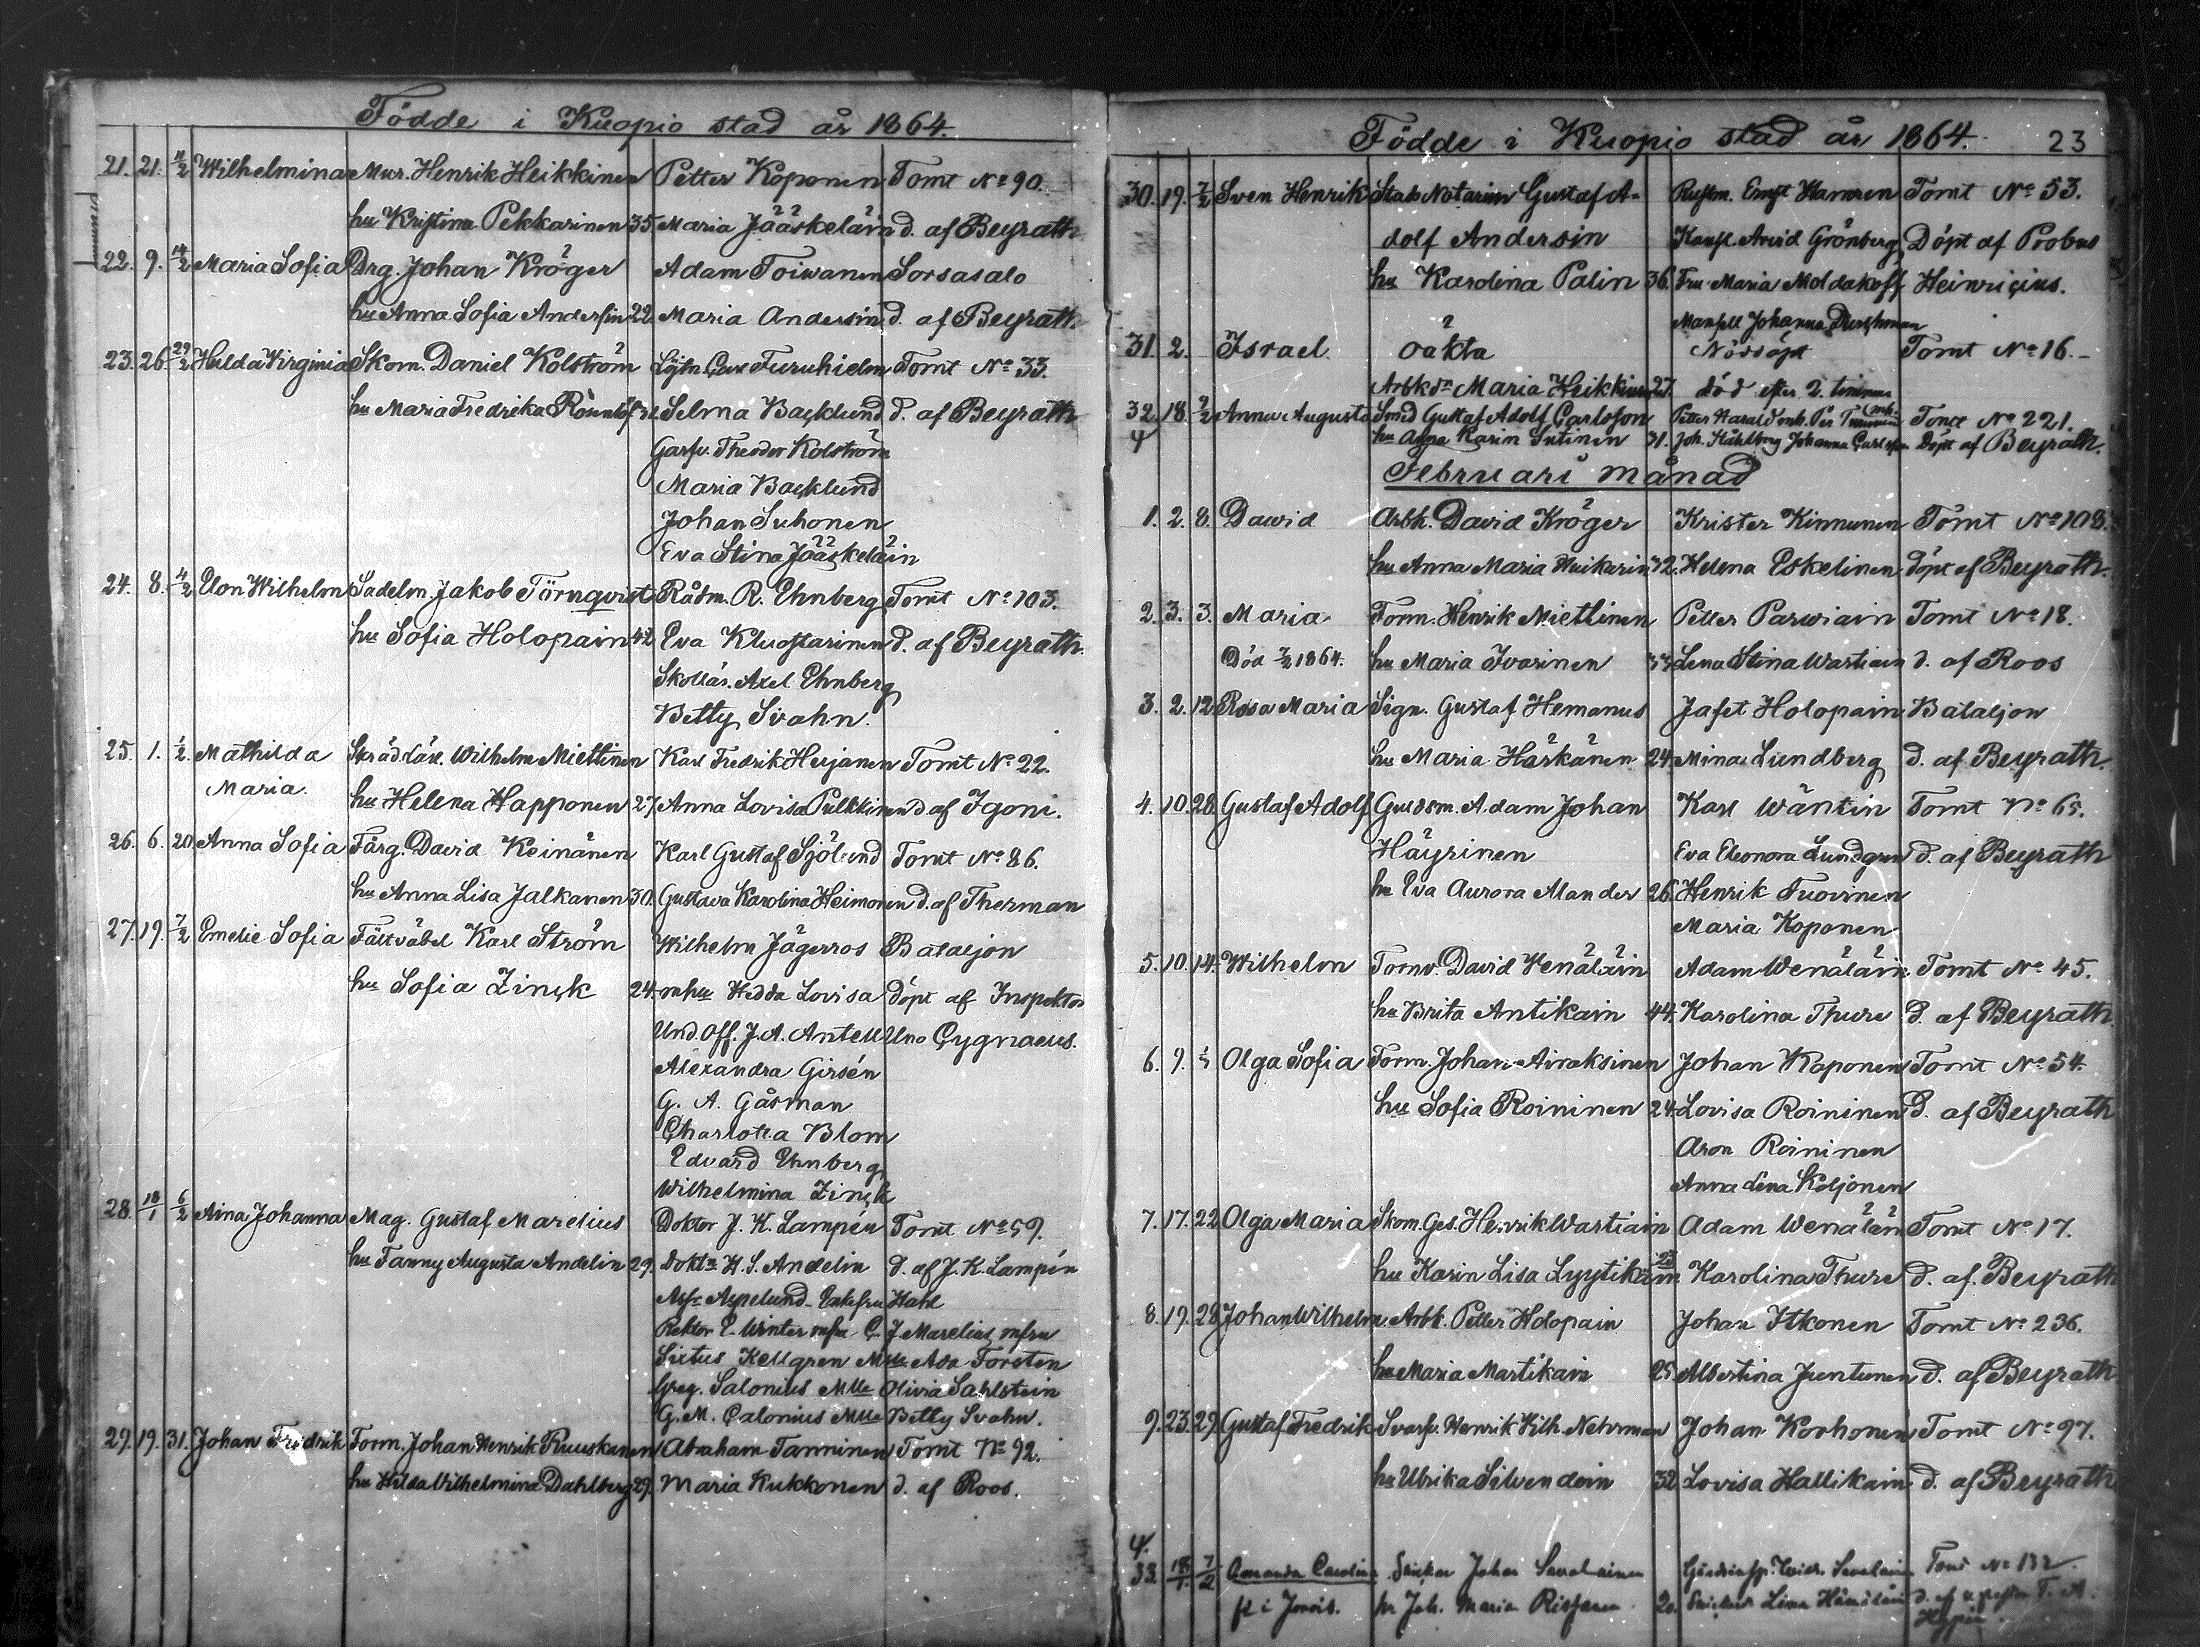 Födde i Kuopio stad år 1864.
21. 21. 11/2 Wilhelmina Mur. Henrik Heikkinen Petter Koponen Tomt No 90.
hu Kristina Pekkarinen 35. Maria Jääskeläin d. af Beyrath
22. 9. 14/2 Maria Sofia Drg. Johan Kröger Adam Toiwanen Sorsasalo
hu Anna Sofia Andersin 22. Maria Andersin d. af Beyrath.
23. 26. 29/2 Hulda Virginia Skom. Daniel Kolström Löjtn. Furuhielm Tomt No 33.
hu Maria Fredrika Rosenlöf Selma Backlund d. af Beyrath
Garfv. Theodor Kolström
Maria Backlund
Johan Suhonen
Eva Stina Jääskeläin
24. 8. 4/2 Elon Wilhelm Sadelm. Jakob Törnqvist Rådm. R. Ehnberg Tomt No 103.
hu Sofia Holopain 42. Eva Kluostarinen d. af Beyrath.
Skollär. Axel Ehnberg
Betty Svahn.
25. 1. 1/2 Mathilda Skräd.läre. Wilhelm Miettinen Karl Fredrik Heijanen Tomt No 22.
Maria. hu Helena Happonen 27. Anna Lovisa Pulkkinen d af Igoni.
26. 6. 20. Anna Sofia Färg. David Keinänen Karl Gustaf Sjölund Tomt No 86.
hu Anna Lisa Jalkanen 30. Gustava Karolina Heimonen d. af Therman
27. 19. 7/2 Emelie Sofia Fältväbel Karl Ström Wilhelm Jägerros Bataljon
hu Sofia Zinck 24. m hu Hedda Lovisa döpt af Inspektor
Und. Off. J. A. Antell Uno Cygnaeus.
Alexandra Girsén
G. A. Gåsman
Charlotta Blom
Edvard Ehnberg
Wilhelmina Zinck
28. 18/1 6/2 Aina Johanna Mag. Gustaf Marelius Doktor J. K. Lampén Tomt No 59.
hu Fanny Augusta Andelin 29. Dokt. H. S. Andelin d. af J. K. Lampén
Aspelund Hahl
Rektor E. Winter mfru C. J. Marelius mfru
Sixtus Kellgren Mlle Ada Forstén
Greg. Salonius Mlle Olivia Sahlstein
G. M. Calonius Mlle Betty Svahn.
29. 19. 31. Johan Fredrik Form. Johan Henrik Ruuskanen Abraham Tanninen Tomt No 92.
hu Hilda Wilhelmina Dahlberg 29. Maria Kukkonen d. af Roos.
Födde i Kuopio stad år 1864. 23
30. 19. 7/2 Sven Henrik Stads Notarien Gustaf A- Ernst Hamren Tomt No 53.
dolf Andersin Arvid Grönberg Döpt af Probus
hu Karolina Palin 36. Fru Maria Moldakoff Heinricius.
Mansell Johanna
31. 2. Israel. oäkta Nödöpt Tomt No 16.
Arbkdr Maria Heikkinen 27. död efter 2. timmar
32. 18. 2/2 Anna Augusta Smed Gustaf Adolf Carlsson Petter Harald Tomt No 221.
hu Anna Karin Sutinen 31. Joh. Ståhlberg Johanna Carlsson Döpt af Beyrath.
Februari månad
1. 2. 8. Dawid Arbk. David Kröger Krister Kinnunen Tomt No 108.
hu Anna Maria Huikarin 32. Helena Eskelinen döpt af Beyrath.
2. 3. 3. Maria. Torm. Henrik Miettinen Petter Parwiain Tomt No 18.
Död 7/2 1864. hu Maria Ivarinen Lena Stina Wartiain d. af Roos
3. 2. 12. Rosa Maria Sign. Gustaf Hemanus Jafet Holopain Bataljon
hu Maria Härkänen 24. Mina Lundberg d. af Beyrath.
4. 10. 28. Gustaf Adolf Guldsm. Adam Johan Karl Wäntin Tomt No 65.
Häyrinen Eva Eleonora Lundgren d. af Beyrath
hu Eva Aurora Alander 26. Henrik Tuovinen
Maria Koponen
5. 10. 14. Wilhelm Torm. David Wenäläin Adam Wenäläin Tomt No 45.
hu Brita Antikain 44. Karolina Thure d. af Beyrath
6. 9. Olga Sofia Torm. Johan Airaksinen Johan Koponen Tomt No 54.
hu Sofia Roininen 24. Lovisa Roininen d. af Beyrath
Aron Roininen
Anna Lena Koljonen
7. 17. 22. Olga Maria Skom. Ges. Henrik Wartiain Adam Wenäläin Tomt No 17.
hu Karin Lisa Lyytikäin 23 Karolina Thure d. af. Beyrath
8. 19. 28. Johan Wilhelm Arbk. Petter Holopain Johan Itkonen Tomt No 236.
hu Maria Martikain 25. Albertina Juntunen d. af Beyrath
9. 23. 29. Gustaf Fredrik Svarfv. Henrik Wilh. Nehrman Johan Korhonen Tomt No 97.
hu Ulrika Silvendoin 32. Lovisa Hallikain d. af Beyrath
33. 18/1. 7/2 Amanda Carolina Johan Savolainen Tomt No 132.
hu Joh. Maria 20. Lena d. af T. A.